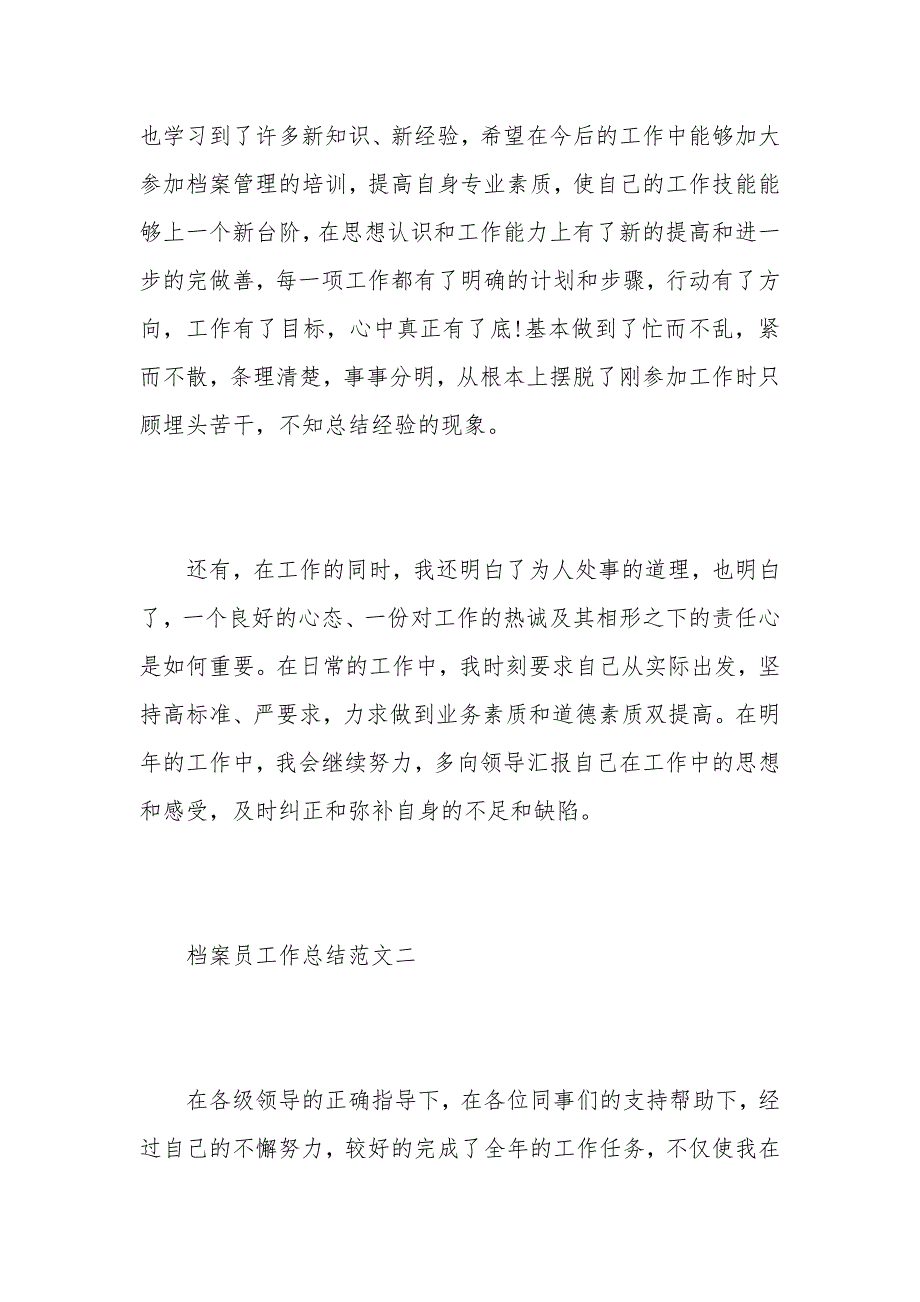 也学习到了许多新知识、新经验，希望在今后的工作中能够加大
参加档案管理的培训，提高自身专业素质，使自己的工作技能能
够上一个新台阶，在思想认识和工作能力上有了新的提高和进一
步的完做善，每一项工作都有了明确的计划和步骤，行动有了方
向，工作有了目标，心中真正有了底!基本做到了忙而不乱，紧
而不散，条理清楚，事事分明，从根本上摆脱了刚参加工作时只
顾埋头苦干，不知总结经验的现象。
还有，在工作的同时，我还明白了为人处事的道理，也明白
了，一个良好的心态、一份对工作的热诚及其相形之下的责任心
是如何重要。在日常的工作中，我时刻要求自己从实际出发，坚
持高标准、严要求，力求做到业务素质和道德素质双提高。在明
年的工作中，我会继续努力，多向领导汇报自己在工作中的思想
和感受，及时纠正和弥补自身的不足和缺陷。
档案员工作总结范文二
在各级领导的正确指导下，在各位同事们的支持帮助下，经
过自己的不懈努力，较好的完成了全年的工作任务，不仅使我在